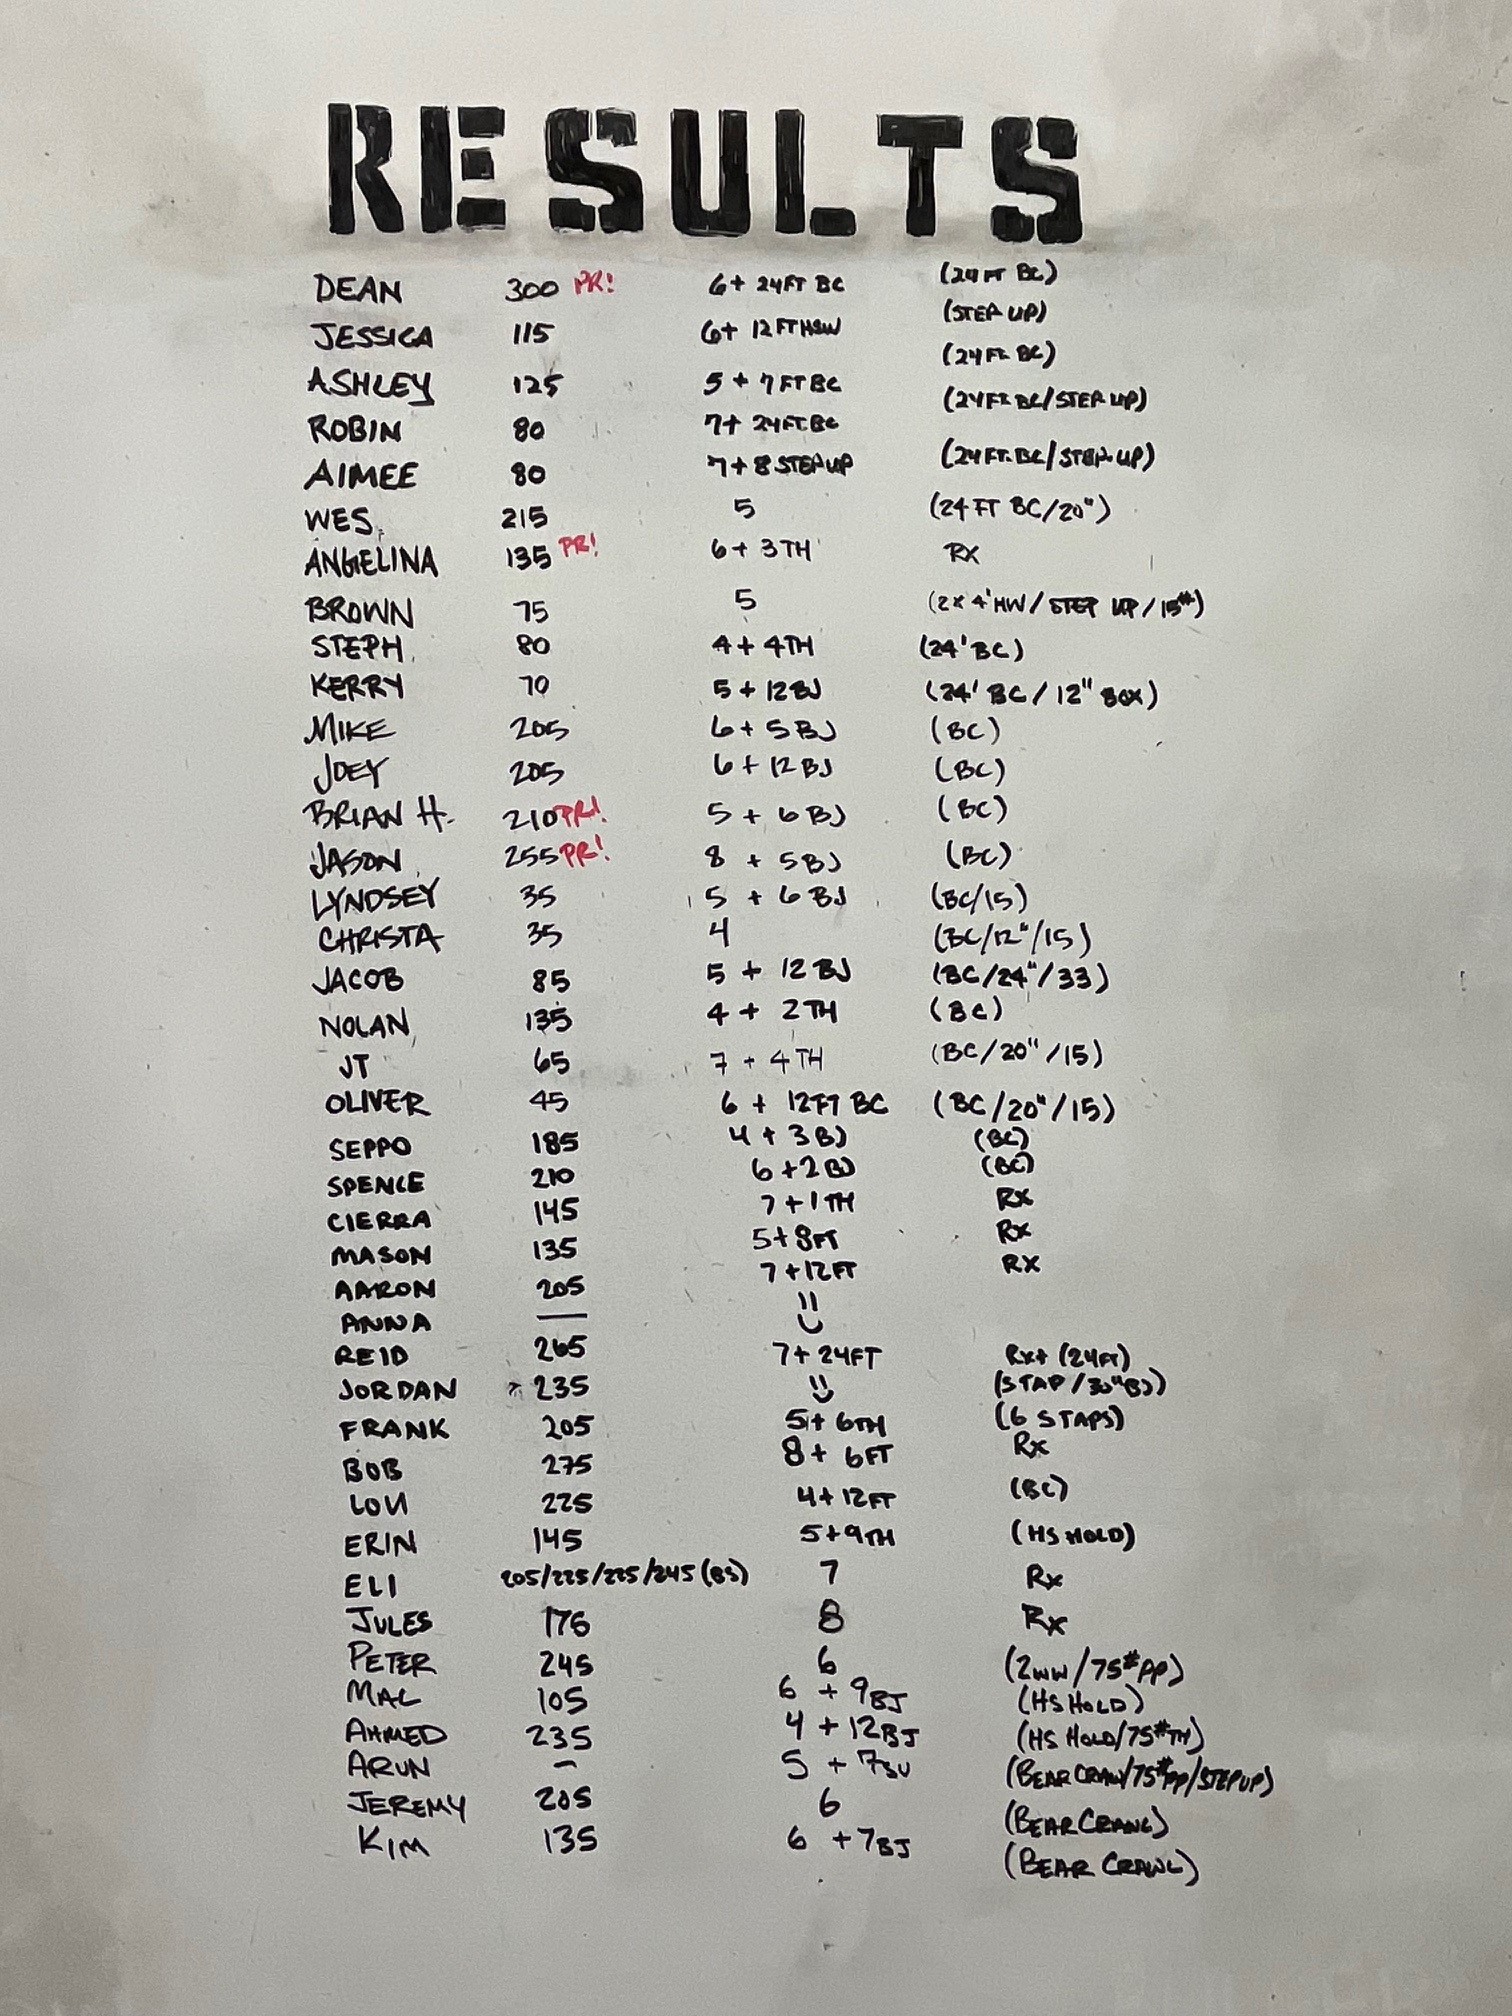 RESULTS
DEAN 300 PR! 6+ 24FT BC (24 FT BC)
JESSICA 115 6+ 12FT HSW (STEP UP)
ASHLEY 125 5 + 7FT BC (24 FT BC)
ROBIN 80 7+ 24FT BC (24FT BC/STEP UP)
AIMEE 80 7+8 STEP UP (24 FT. BC/STEP UP)
WES 215 5 (24 FT BC/20")
ANGELINA 135 PR! 6+ 3TH RX
BROWN 75 5 (2x 4' HW/STEP UP/15#)
STEPH 80 4+4TH (24' BC)
KERRY 70 5+12BJ (24' BC/12" BOX)
MIKE 205 6+5BJ (BC)
JOEY 205 6+12BJ (BC)
BRIAN H. 210 PR! 5 + 6BJ (BC)
JASON 255 PR! 8 + 5BJ (BC)
LYNDSEY 35 5 + 6BJ (BC/15)
CHRISTA 35 4 (BC/12"/15)
JACOB 85 5 + 12BJ (BC/24"/33)
NOLAN 135 4 + 2TH (BC)
JT 65 7 + 4TH (BC/20"/15)
OLIVER 45 6 + 12FT BC (BC/20"/15)
SEPPO 185 4+3BJ (BC)
SPENCE 210 6+2BJ (BC)
CIERRA 145 7+1TH RX
MASON 135 5+8FT RX
AARON 205 7+12FT RX
ANNA —
REID 265 7+24FT RX+ (24FT)
JORDAN 235 (STAP/30"BJ)
FRANK 205 5+6TH (6 STAPS)
BOB 275 8+ 6FT Rx
LOU 225 4+12FT (BC)
ERIN 145 5+9TH (HS HOLD)
ELI 205/225/225/245 (BS) 7 Rx
JULES 175 8 Rx
PETER 245 6 (2WW/75# PP)
MAC 105 6 + 9BJ (HS HOLD)
AHMED 235 4 + 12BJ (HS HOLD/75#TH)
ARUN – 5 + 7SU (BEAR CRAWL/75#PP/STEP UP)
JEREMY 205 6 (BEAR CRAWL)
KIM 135 6 +7BJ (BEAR CRAWL)